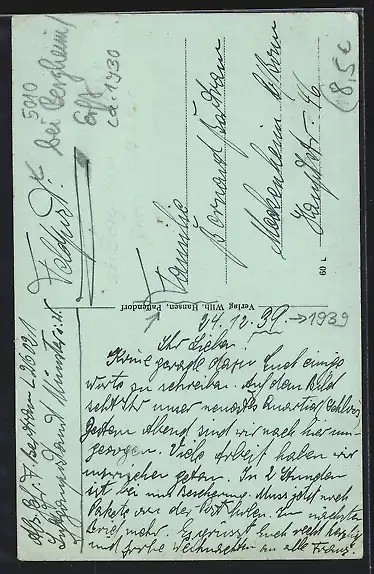 5010
bei Bergheim/
Erft
ca. 1930
8,5€
Feldpost!
Familie
Bernard
Meckenheim b/Bonn
Hauptstr. 46
60 L
Verlag Wilh. Hansen, Paffendorf
24.12.39. → 1939
Ihr Lieben!
Komme gerade dazu Euch einige
Worte zu schreiben. Auf dem Bild
seht Ihr unser neuestes Quartier Schloß.
Gestern Abend sind wir nach hier um-
gezogen. Viele Arbeit haben wir
getan. In 2 Stunden
ist bei uns Bescherung. Muss jetzt noch
Pakete von der Post holen. Im nächsten
Brief mehr. Es grüsst Euch recht herzlich
und frohe Weihnachten an alle Franz.
Abs. L 26121
Luftgaupostamt Münster i.W.